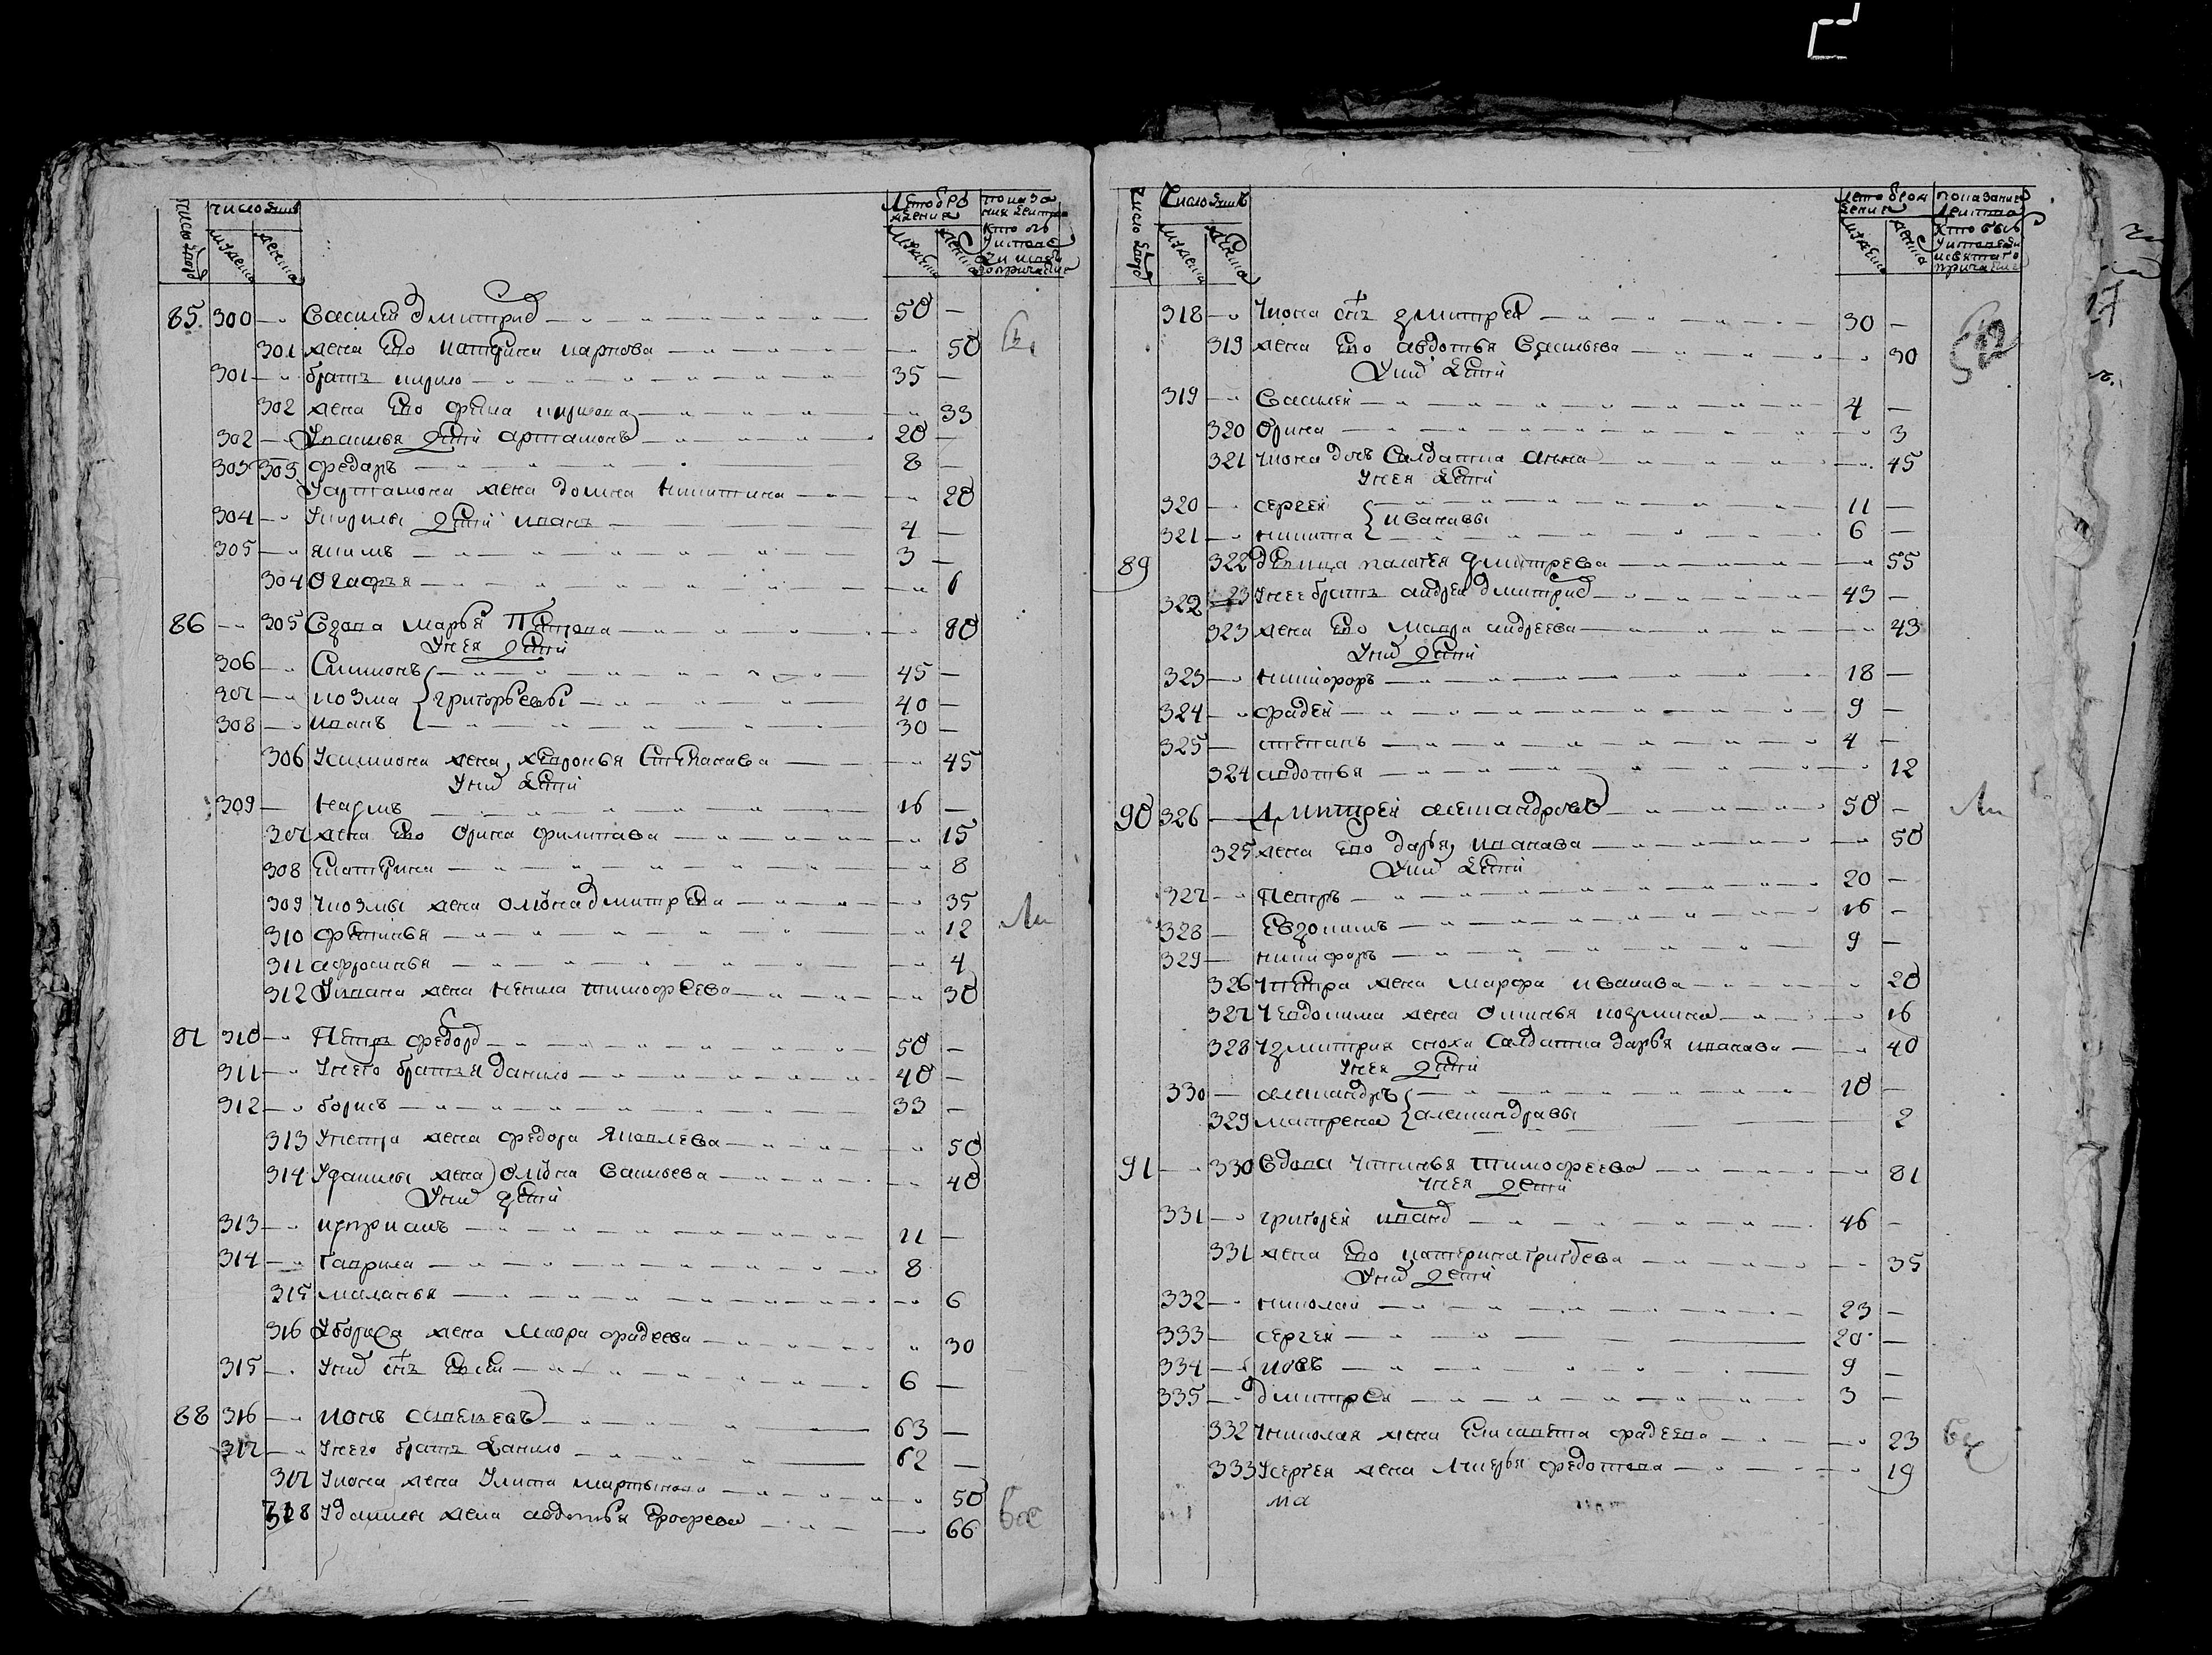 число дворов
число душъ
мужеска
женска
летъ от рождения
мужеска
женска
85 300 Василей Дмитриев 50
301 жена ево катерина карпова 50
301 братъ кирило 35
302 жена ево фекла 33
302 У василья дети артамонъ 20
303 303 федаръ 8
Уартамона жена домна никитина 20
304 Укирилы дети иванъ 4
305 якимъ 3
304 Огафья 6
86 305 Вдова марья Петрова 80
Унея дети
306 Симионъ 45
307 козма григорьевы 40
308 иванъ 30
306 Усимиона жена хевронья Степанава 45
Уних дети
309 наумъ 16
307 жена ево Орина филипава 15
308 Екатерина 8
309 Укозмы жена олiона дмитрева 35
310 фетинья 12
311 афросинья 4
312 Уивана жена ксенья тимофеева 30
87 310 Петръ федоров 50
311 Унего братья данило 40
312 борисъ 33
313 Упетра жена федора Яковлева 50
314 Уданилы жена Олiона Васильева 40
Уних дети
313 куприанъ 11
314 Гаврила 8
315 маланья 6
316 Уборiса жена Мавра фадеева 30
315 Уних снъ Евсей 6
88 316 ионъ савельевъ 63
317 Унего братъ данило 62
317 Уиона жена Улита мартынова 50
318 Уданилы жена авдотья Ерофеева 66
Число дворов
Число душъ
мужеска
женска
мужеска
женска
318 Уиона снъ дмитрей 30
319 жена ево авдотья Васильева 30
Уних дети
319 Василей 4
320 Орина 3
321 Уиона дочь Салдатка анна 45
Унея дети
320 сергей 11
иванавы
321 никита 6
89 322 девица палагея дмитрева 55
322 Унее братъ андрей дмитриев 43
323 жена ево мавра андреева 43
Уних дети
323 никифоръ 18
324 фадей 9
325 степанъ 4
324 авдотья 12
90 326 Дмитрей александровъ 50
325 жена ево дарья иванава 50
Уних дети
327 Петръ 20
328 Евдокимъ 16
329 никифоръ 9
326 Упетра жена марфа иванава 20
327 Уевдокима жена Окинья козмина 16
328 Удмитрия сноха Салдатка дарья иванава 40
Унея дети
330 александръ 10
александравы
329 матрена 2
91 330 Вдова Устинья тимофеева 81
Унея дети
331 григорей иванов 46
331 жена ево катерина григорева 35
Уних дети
332 николай 23
333 сергей 20
334 иовъ 9
335 дмитрей 3
332 Униколая жена Елисавета фадеева 23
333 Усергея жена Лукерья федотова 19